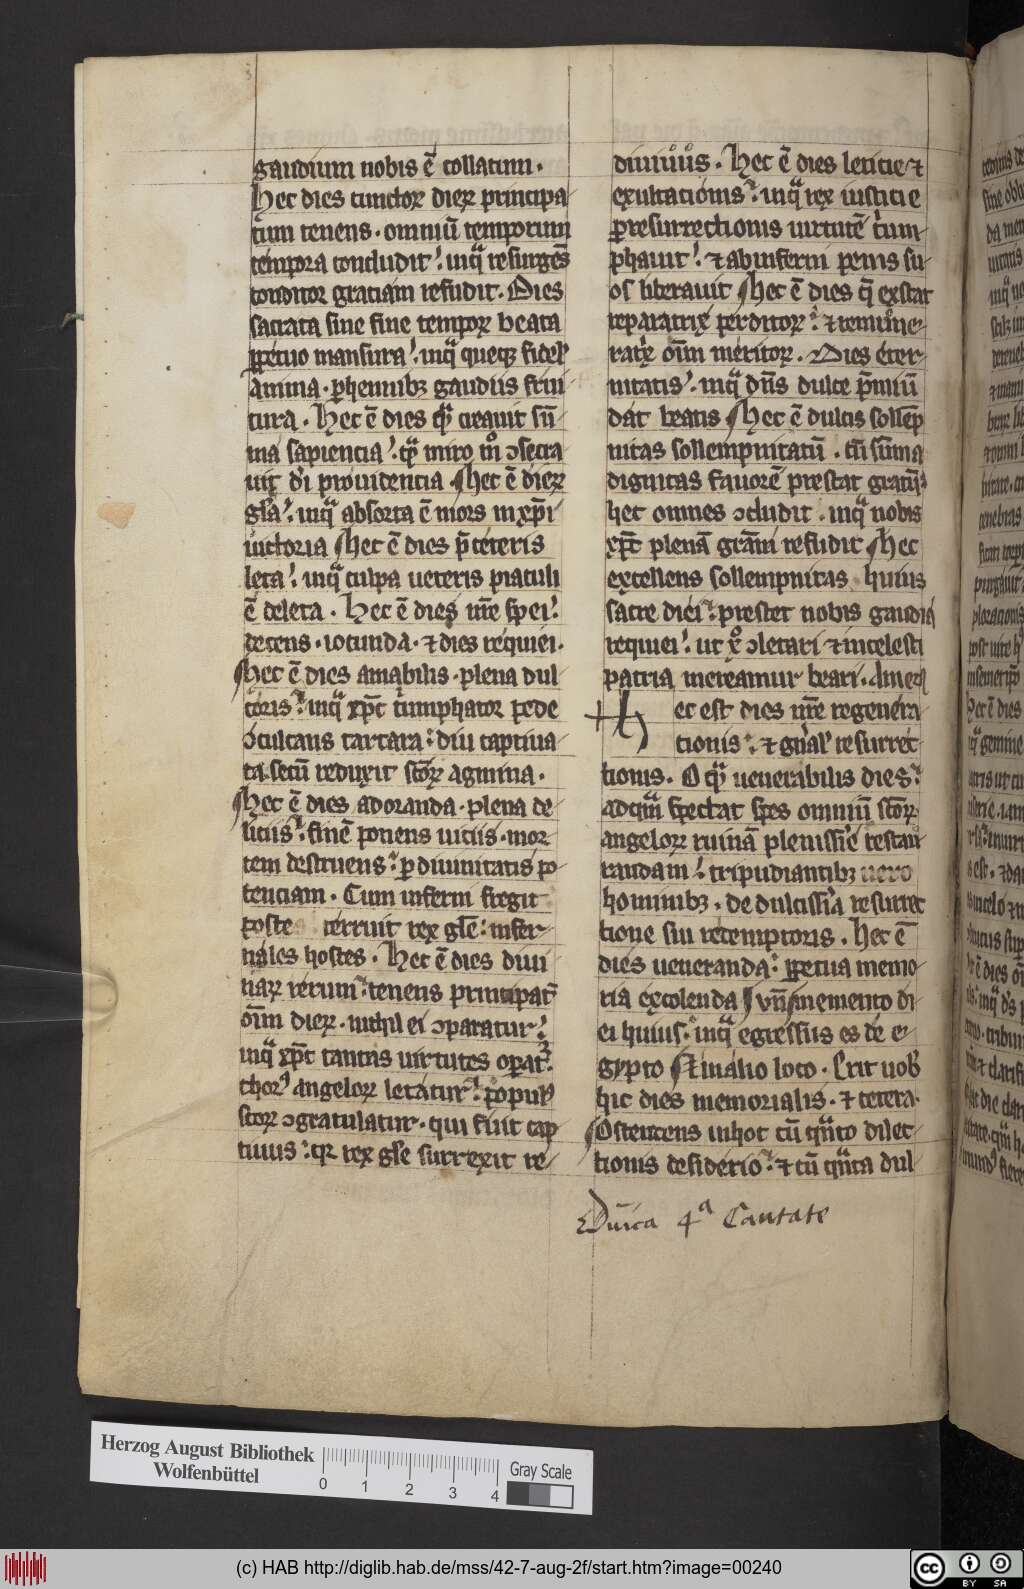 gaudium nobis ē collatum.
Hec dies cunctoꝝ dieꝝ principa-
tum tenens. omniū temporum
tempora concludit. inqᷓ resurgēs
conditor graciam refudit. Dies
sacrata sine fine tempoꝝ beata
ꝑpetuo mansura. inqᷓ queqꝫ fidel᾽
anima. ꝑhennibꝫ gaudiis frui-
tura. Hec ē dies qᷓ creauit sū-
ma sapiencia. qᷓ miro mͦ ↄsecra
uit di prouidencia. Hec ē dieꝝ
glā. inqᷓ absorta ē mors in xp̄i
uictoria Hec ē dies p̄ceteris
leta. inqᷓ culpa ueteris piaculi
ē deleta. Hec ē dies nr̄e spei.
decens. iocunda. ⁊ dies requiei.
Hec ē dies amabilis. plena dul
coris. inqᷓ xp̄c triumphator pede
ↄculcans tartara. diu captiua-
ta secū reduxit sc̄oꝝ agmina.
Hec ē dies adoranda. plena de-
liciis. finē ponens uiciis. mor-
tem destruens. ꝑ diuinitatis po-
tenciam. Cum inferni fregit
poste terruit rex gle. infer-
nales hostes. Hec ē dies diui
naꝝ rerum. tenens principat᾽
om̄ dieꝝ. nichil ei ↄparatur.
inqᷓ xp̄c tantas uirtutes oꝑat᾽.
chor᾽ angeloꝝ letatur. popul᾽
sc̄oꝝ ↄgratulatur. qui fuit cap
tiuus. qꝛ rex gle surrexit re-
diuiuus. Hec ē dies leticie ⁊
exultacionis. inqᷓ rex iusticie
ꝑ resurrectionis uirtutē trium-
phauit. ⁊ ab inferni penis su-
os liberauit Hec ē dies q̄ exstat
reparatrix perditoꝝ. ⁊ remune-
ratrix om̄ meritoꝝ. Dies eter-
nitatis. inqᷓ dn̄s dulce p̄miū
dat beatis Hec ē dulcis sollēp
nitas sollempnitatū. cū sūma
dignitas fauorē prestat gratū.
hec omnes ↄcludit. inqᷓ nobis
xp̄c plenā gram̄ refudit Hec
excellens sollempnitas huius
sacre diei. prestet nobis gaudia
requiei. ut xͦ ↄletari ⁊ in celesti
patria mereamur beari. Amen
Hec est dies nr̄e regenera
tionis. ⁊ gn̄al᾽ resurrec-
tionis. O qᷓ uenerabilis dies.
ad quā spectat spes omniū sc̄oꝝ
angeloꝝ ruinā plenissīe restau-
randam. tripudiantibꝫ uero
hominibꝫ. de dulcissīa resurrec
tione sui redemptoris. Hec ē
dies ueneranda. ꝑpetua memo-
ria excolenda Vn̄ memento di-
ei huius. inqᷓ egressus es de e-
gypto Et in alio loco. Erit uob᾽
hic dies memorialis. ⁊ cetera.
Ostentens in hoc cū qn̄to dilec-
tionis desiderio. ⁊ cū qn̄ta dul
Dn̄ica 4ᵃ Cantate
Herzog August Bibliothek
Wolfenbüttel
0 1 2 3 4
Gray Scale
(c) HAB http://diglib.hab.de/mss/42-7-aug-2f/start.htm?image=00240
cc BY SA